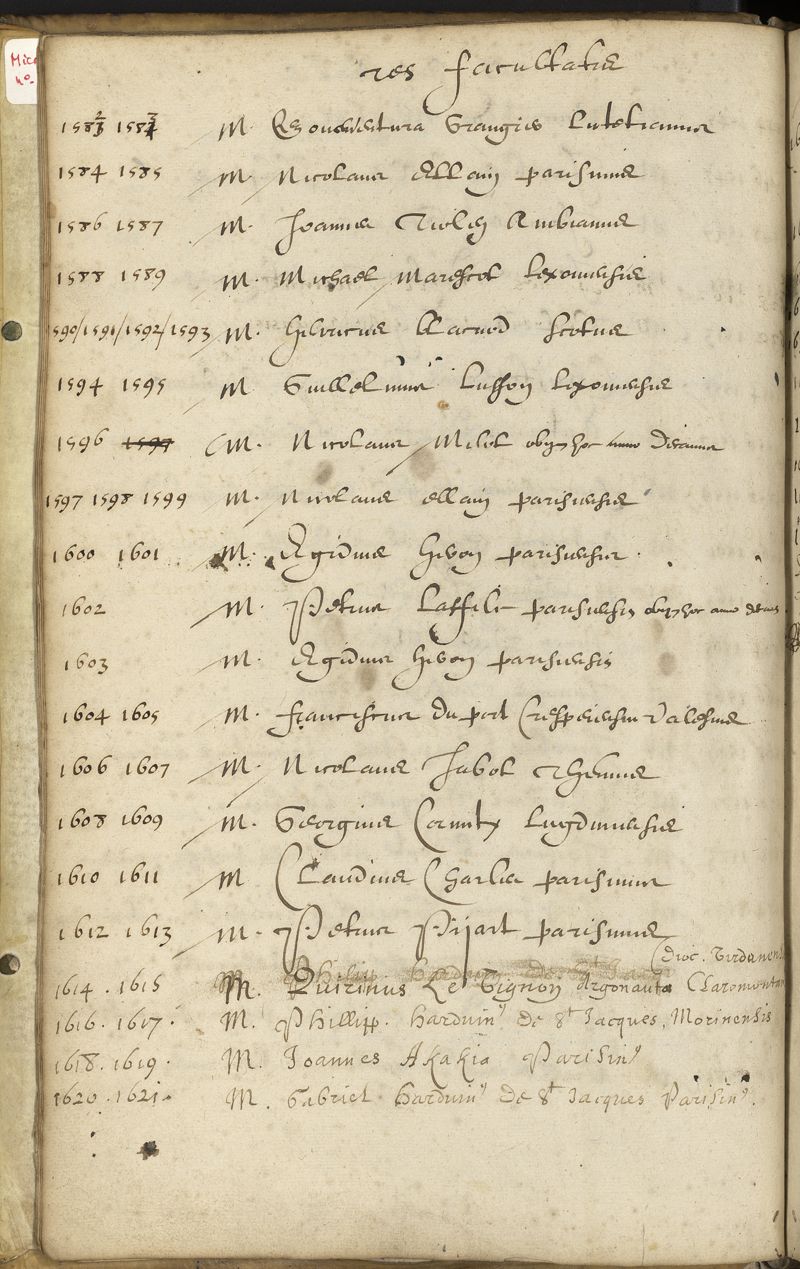 Mico
no.
res facultatis
1582/3 1583/4 M. Bonaventura Grangier Lutetianus
1584 1585 M. Nicolaus Ellain parisinus
1586 1587 M. Joannes Riolan Ambianus
1588 1589 M. Michael Marescot Lexoviensis
1590/1591/1592/1593 M. Henricus Blacuod Scotus
1594 1595 M Guillelmus Lusson Lexoviensis
1596 1597 M. Nicolaus Milot obijt hoc anno Decanus
1597 1598 1599 M. Nicolaus ellain parisiensis
1600 1601 M. Ægidius Heron parisiensis
1602 M. Petrus Laffilé parisiensis obijt hoc anno
1603 M. Ægidius Heron parisiensis
1604 1605 M. franciscus Duport Crespeiensis Valesius
1606 1607 M. Nicolaus Jabot Rhemus
1608 1609 M. Georgius Cornuty Lugdunensis
1610 1611 M Claudius Charles parisinus
1612 1613 M. Petrus Pijart parisinus
(Dioc. Virdunen
1614 . 1615 M. Quirinus Le Vignon Argonauta Claromontan
1616 . 1617 . M. Philipp. Harduinus De St Jacques, Morinensis
1618 . 1619 . M. Joannes Akakia Parisinus
1620 . 1621 . M. Gabriel Harduinus De St Jacques Parisinus.